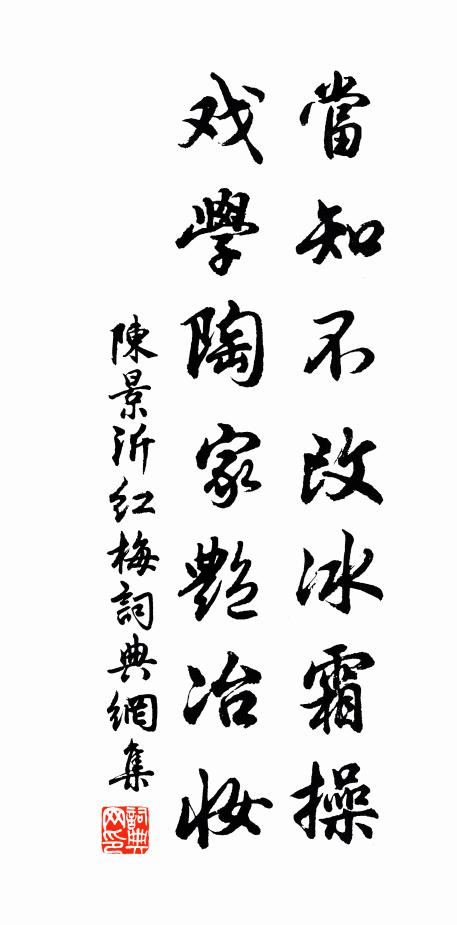 當知不改冰霜操
戏學陶家艷冶妝
陳景沂紅梅詞典網集
詞典網印